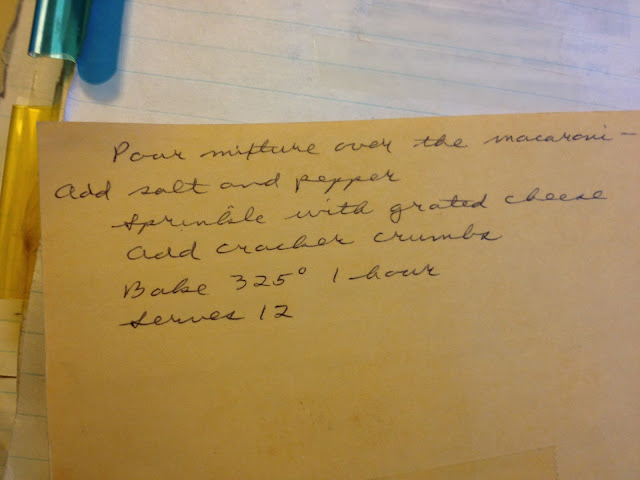 Pour mixture over the macaroni -
Add salt and pepper
Sprinkle with grated cheese
Add cracker crumbs
Bake 325° 1 hour
Serves 12